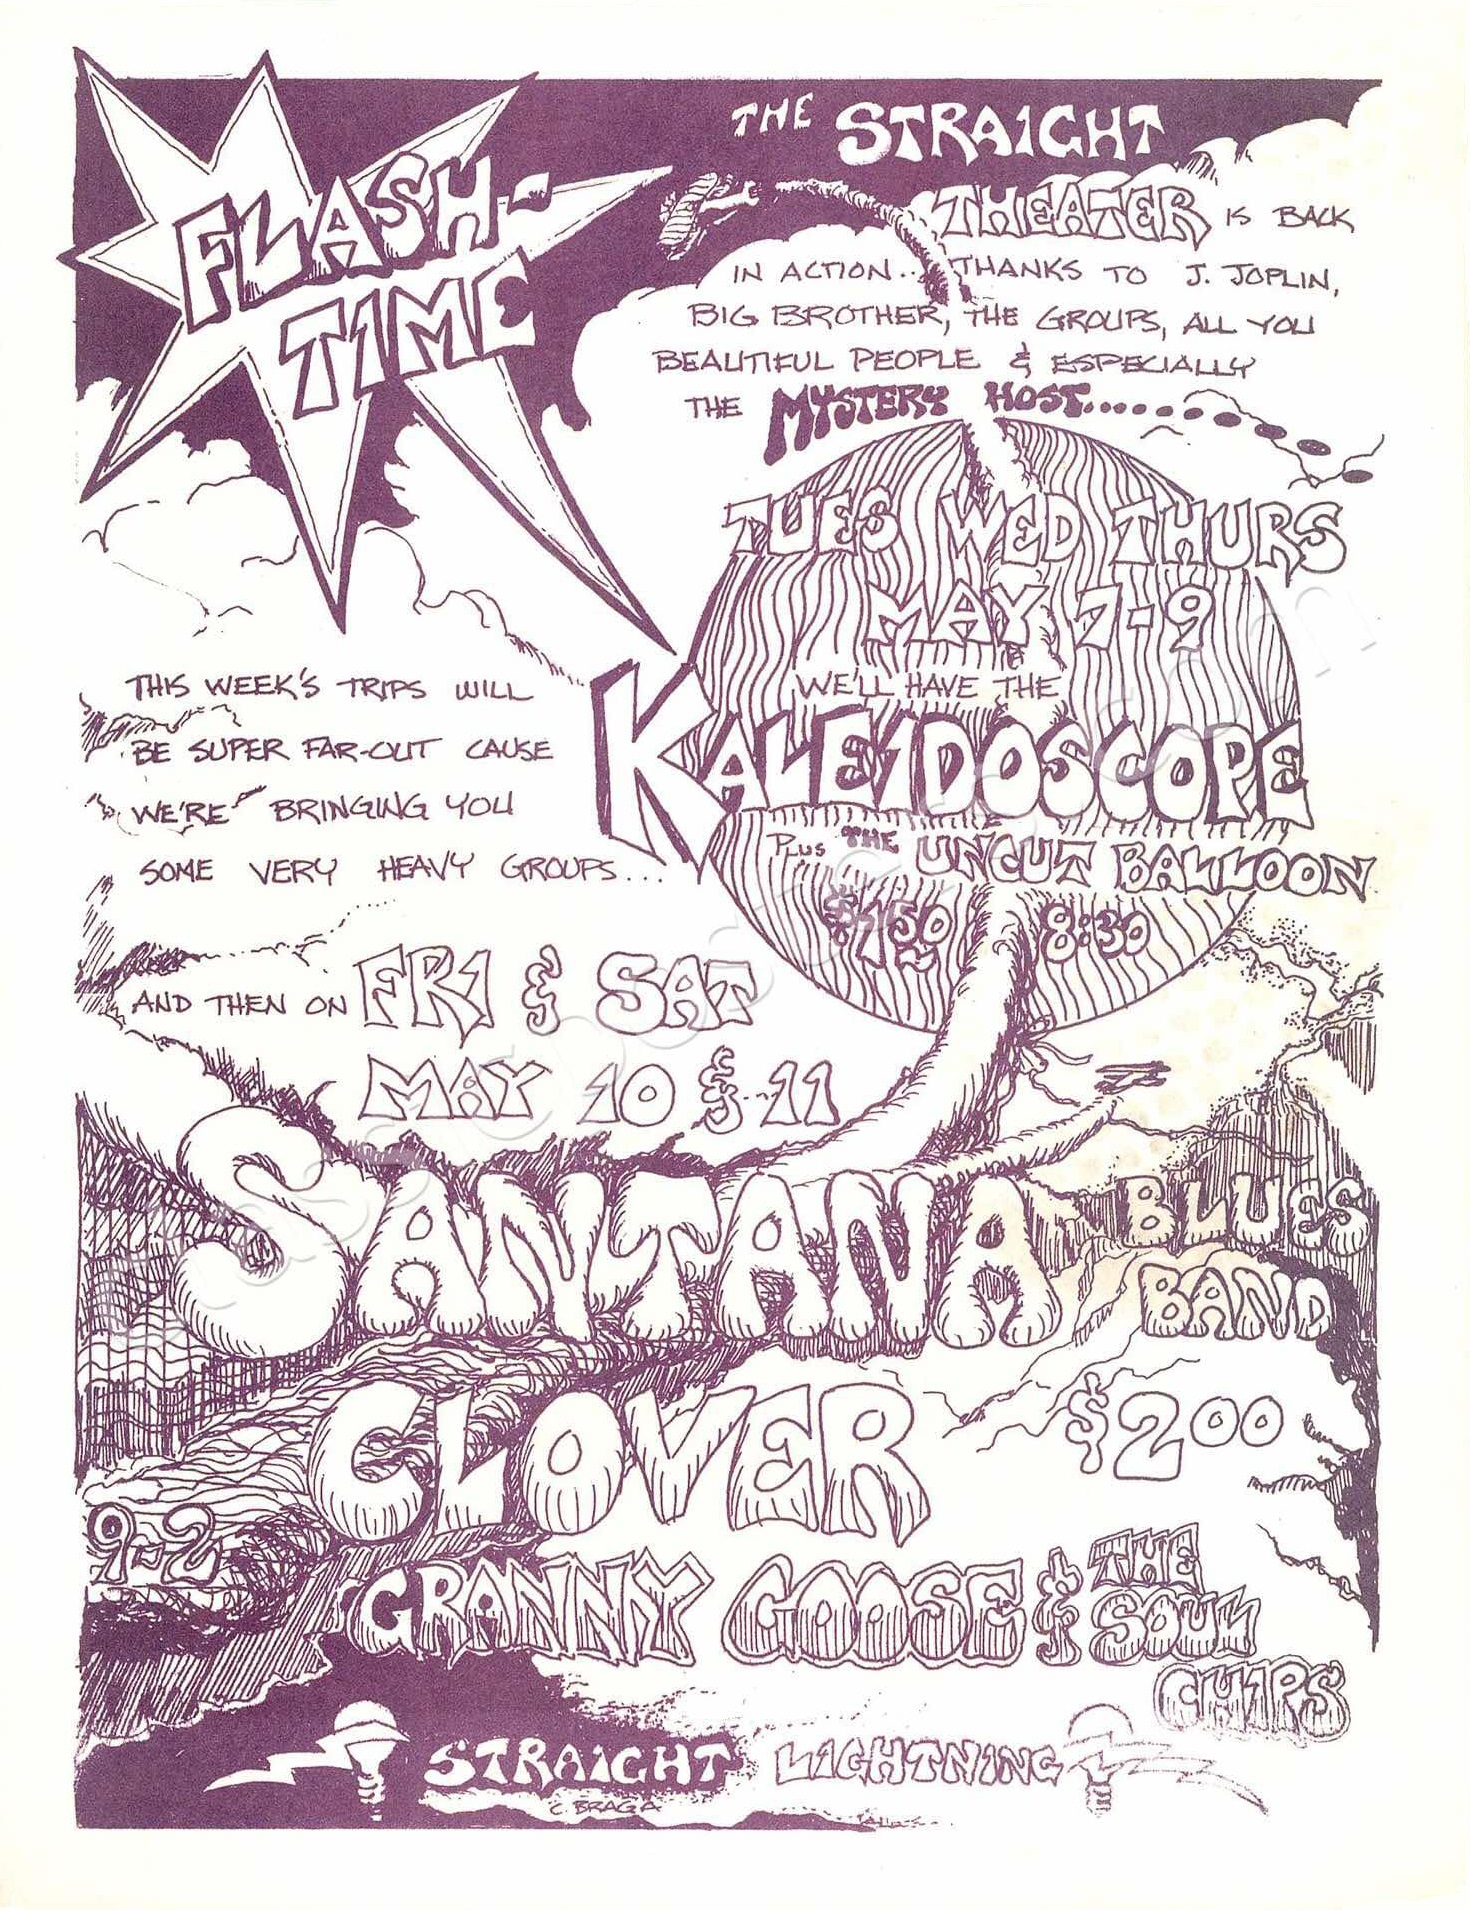 FLASH-
TIME
THE STRAIGHT
THEATER IS BACK
IN ACTION... THANKS TO J. JOPLIN,
BIG BROTHER, THE GROUPS, ALL YOU
BEAUTIFUL PEOPLE & ESPECIALLY
THE MYSTERY HOST......
TUES WED THURS
MAY 7-9
WE'LL HAVE THE
KALEIDOSCOPE
PLUS THE UNCUT BALLOON
$1.50 8:30
THIS WEEK'S TRIPS WILL
BE SUPER FAR-OUT CAUSE
WE'RE BRINGING YOU
SOME VERY HEAVY GROUPS...
AND THEN ON FRI & SAT
MAY 10 & 11
SANTANA BLUES
BAND
CLOVER $2.00
9-2
GRANNY GOOSE & THE
SOUL
CHIPS
STRAIGHT LIGHTNING
C. BRAGA
classicposters.com